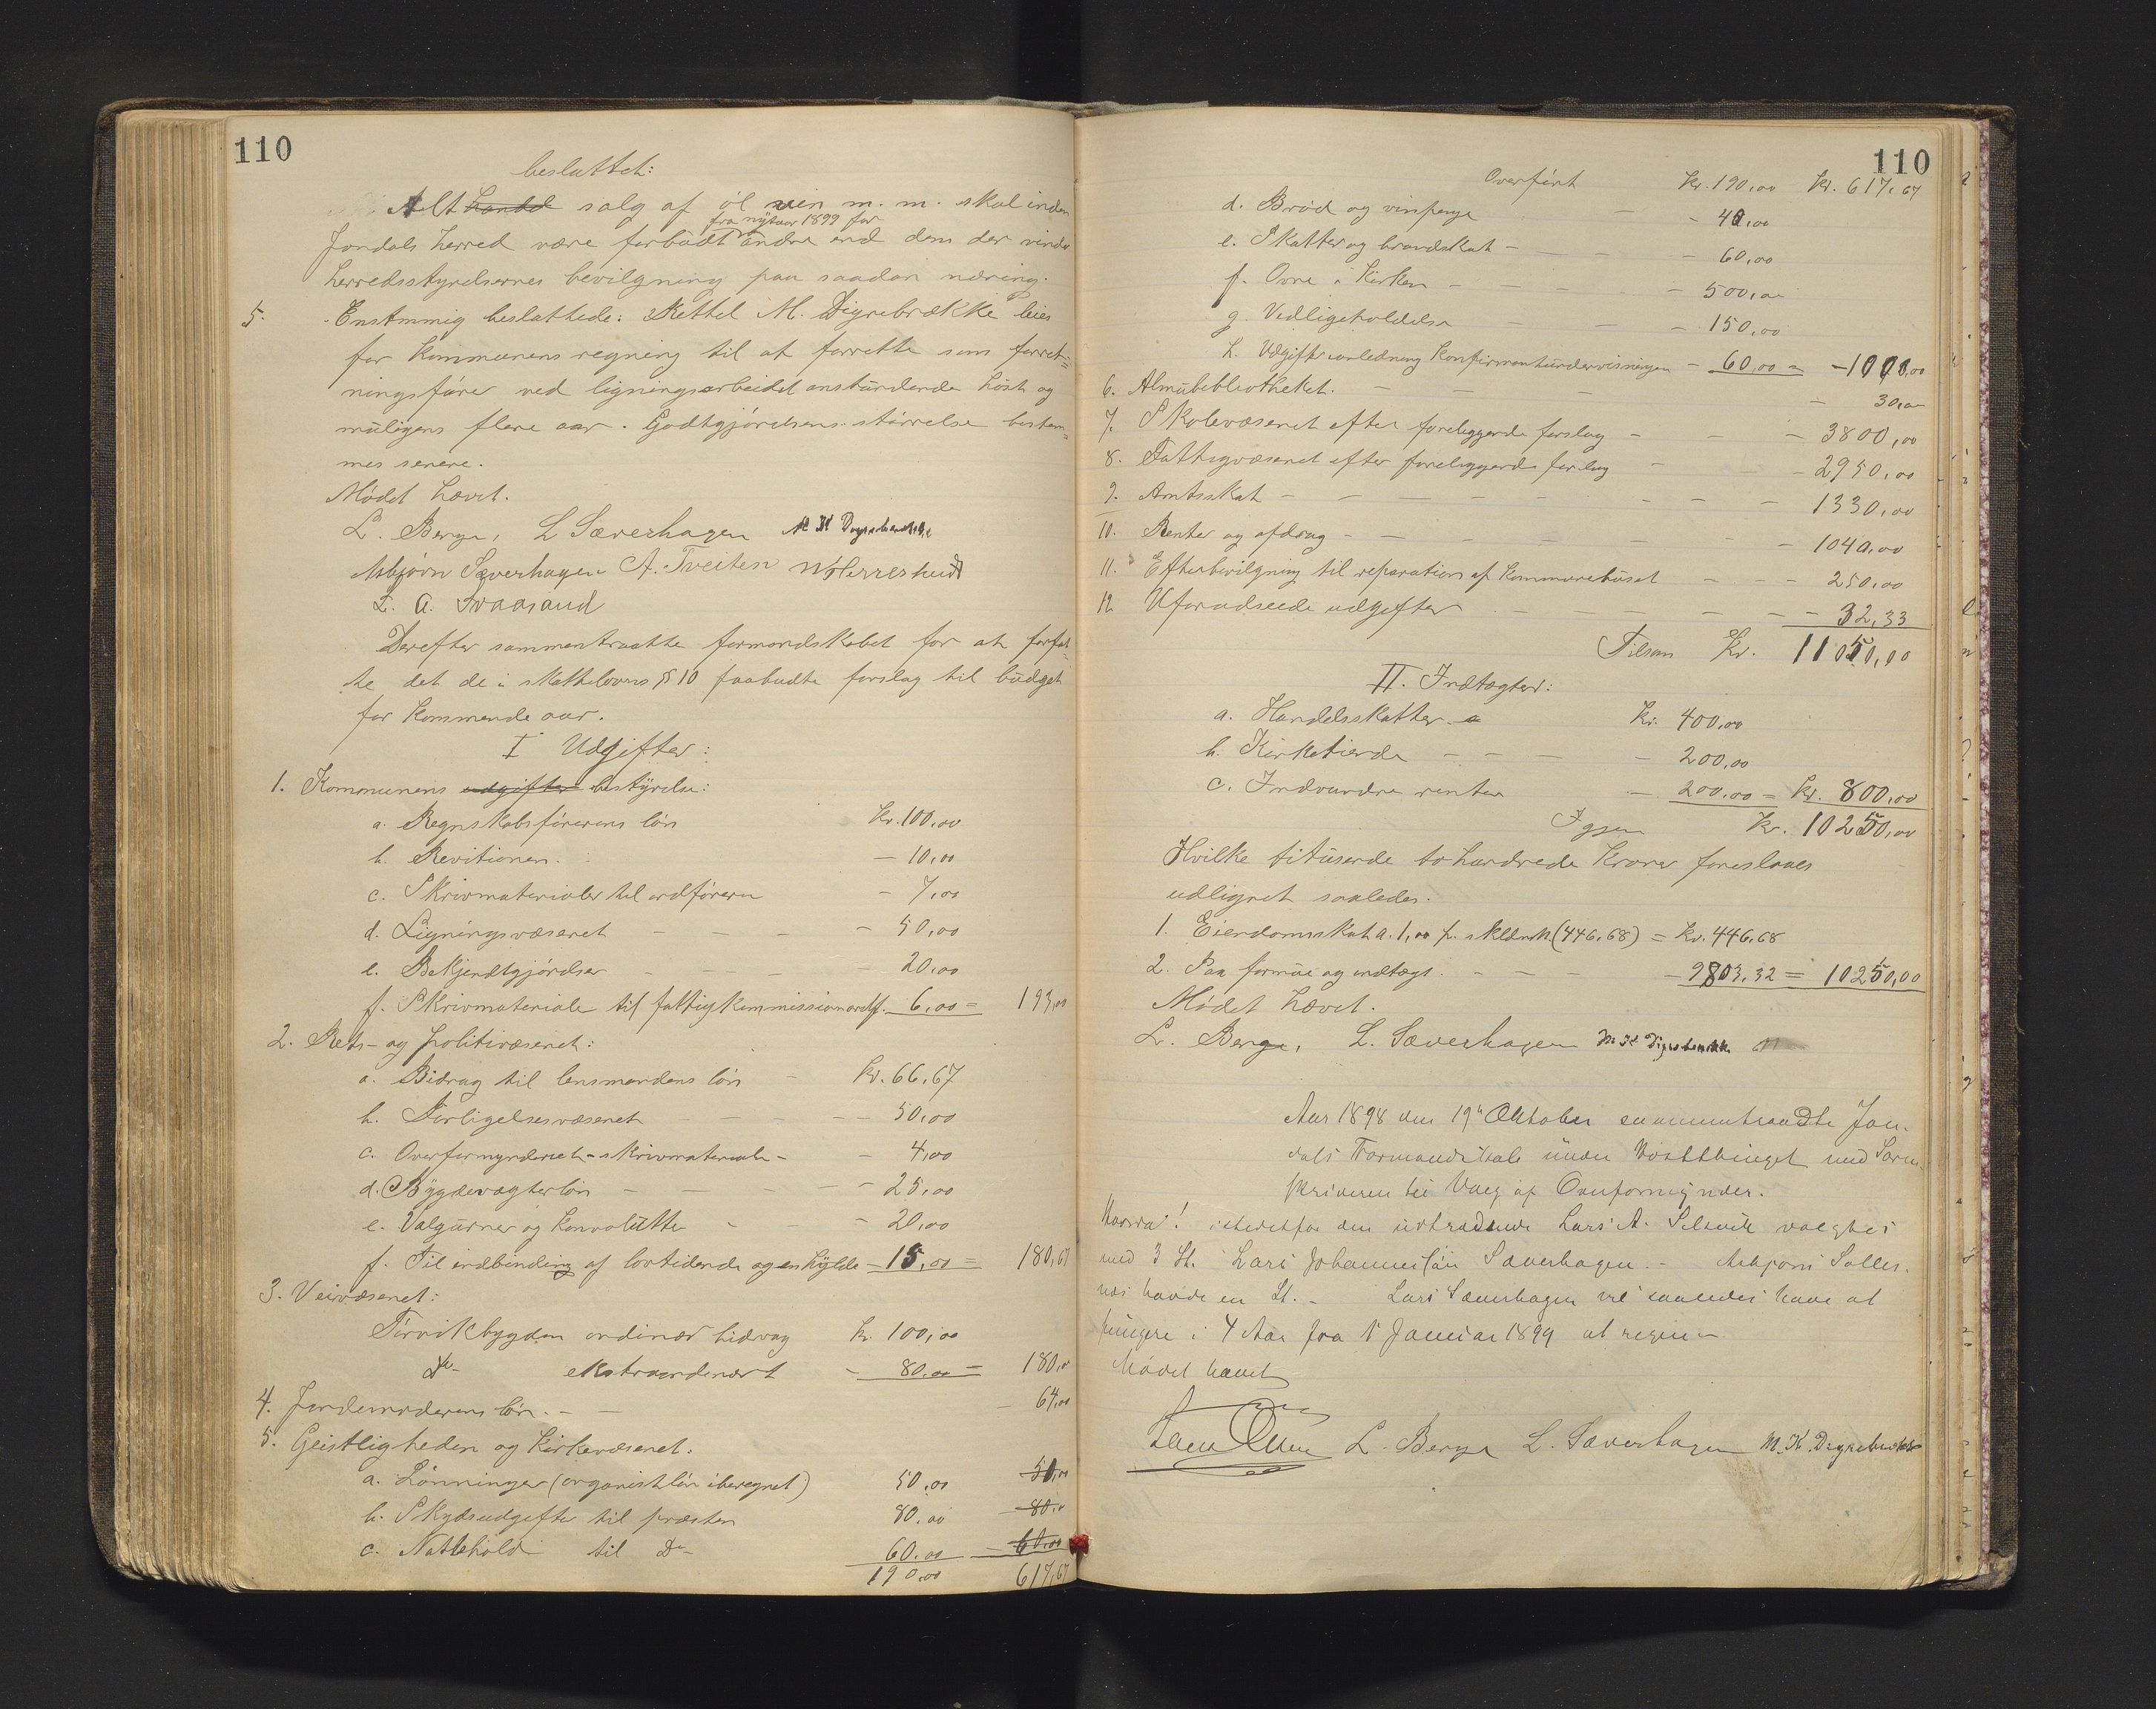 110
beslattet:
Alt handel salg af öl vin m. m. skal inden
fra nytaar 1899 for
Jondals herred være forbudt andre end dem der vinde
herredsstyrelsernes bevilgning paa saadan næring.
5. Enstemmig beslattede: Kettel M. Digrebrække leies
for kommunens regning til at forrette som forret=
ningsfører ved ligningsarbeidet anstundende höst og
muligens flere aar. Godtgjörelsens störrelse bestem=
mes senere.
Mödet hævet.
L. Berge, L Sæverhagen M K Digrebrække
Asbjörn Sæverhagen A. Tveiten N Herresheidt
L. A. Svaasand
Derefter sammentraatte formandskabet for at forfat=
te det de i skatteloven § 10 paabudte forslag til budget
for kommende aar.
I Udgifter:
1. Kommunens udgifter bestyrelse:
a. Regnskabsförerens lön Kr. 100,00
b. Revitionen. — 10,00
c. Skrivmaterialer til ordföreren — 7,00
d. Ligningsvæsenet — — — — 50,00
e. Bekjendtgjörelser — — — — 20,00
f. Skrivmateriale til fattigkommissionordf. — 6,00 = 193,00
2. Rets- og politivæsenet:
a. Bidrag til lensmandens lön — Kr. 66,67
b. Forligelsesvæsenet — — — — 50,00
c. Overformynderiet - skrivmateriale — — 4,00
d. Bygdevægterlön — — — — 25,00
e. Valgurner og konvolutter — — 20,00
f. Til indbinding af lovtidende og en hylde — 15,00 = 180,67
3. Veivæsenet:
Torvikbygden ordinær bidrag Kr. 100,00
Do ekstraordinært — 80,00 = 180,00
4. Jordemoderens lön. — — — 64,00
5. Geistligheden og kirkevæsenet.
a. Lönninger (organistlön iberegnet) 50,00 50,00
b. Skydsudgifter til præsten 80,00 — 80,00
c. Nattehold til Do 60,00 — 60,00
190,00 617,67
110
Overfört Kr. 190,00 Kr. 617,67
d. Bröd og vinpenge — — 40,00
e. Skatter og brandskat — — — — 60,00
f. Ovne i kirken — — — — 500,00
g. Vedligeholdelse — — — 150,00
h. Udgifter anledning konfirmantundervisningen — 60,00 = — 1000,00
6. Almubibliotheket. — — — — 30,00
7. Skolevæsenet efter foreliggende forslag — — — 3800,00
8. Fattigvæsenet efter foreliggende forslag — — 2950,00
9. Amtsskat — — — — — — 1330,00
10. Renter og afdrag — — — — — — 1040,00
11. Efterbevilgning til reparation af kommunehuset — — — 250,00
12. Uforudseede udgifter — — — — — 32,33
Tilsam Kr. 11050,00
II. Indtægter:
a. Handelsskatter Kr. 400,00
b. Kirketiende — — — — 200,00
c. Indvundne renter — 200,00 = Kr. 800,00
Igjen Kr. 10250,00
Hvilke titusende tohundrede kroner foreslaaes
udlignet saaledes.
1. Eiendomsskat a. 1,00 p. skldmk. (446,68) = Kr. 446,68
2. Paa formue og indtægt. — — — — 9803,32 = 10250,00
Mödet hævet.
L. Berge, L. Sæverhagen M K Digrebrække
Aar 1898 den 19de Oktober sammentraadte Jon-
dals Formandskab under Höstthinget med Soren-
skriveren til Valg af Overformynder.
Hvorpaa! istedetfor den udtrædende Lars A. Selsvik valgtes
med 3 St. Lars Johannessön Sæverhagen. — Asbjörn Solles-
næs havde en St. — Lars Sæverhagen vil saaledes have at
fungere i 4 Aar fra 1 Januar 1899 at regne —
Mödet hævet
L. Berge L. Sæverhagen M. K. Digrebrække